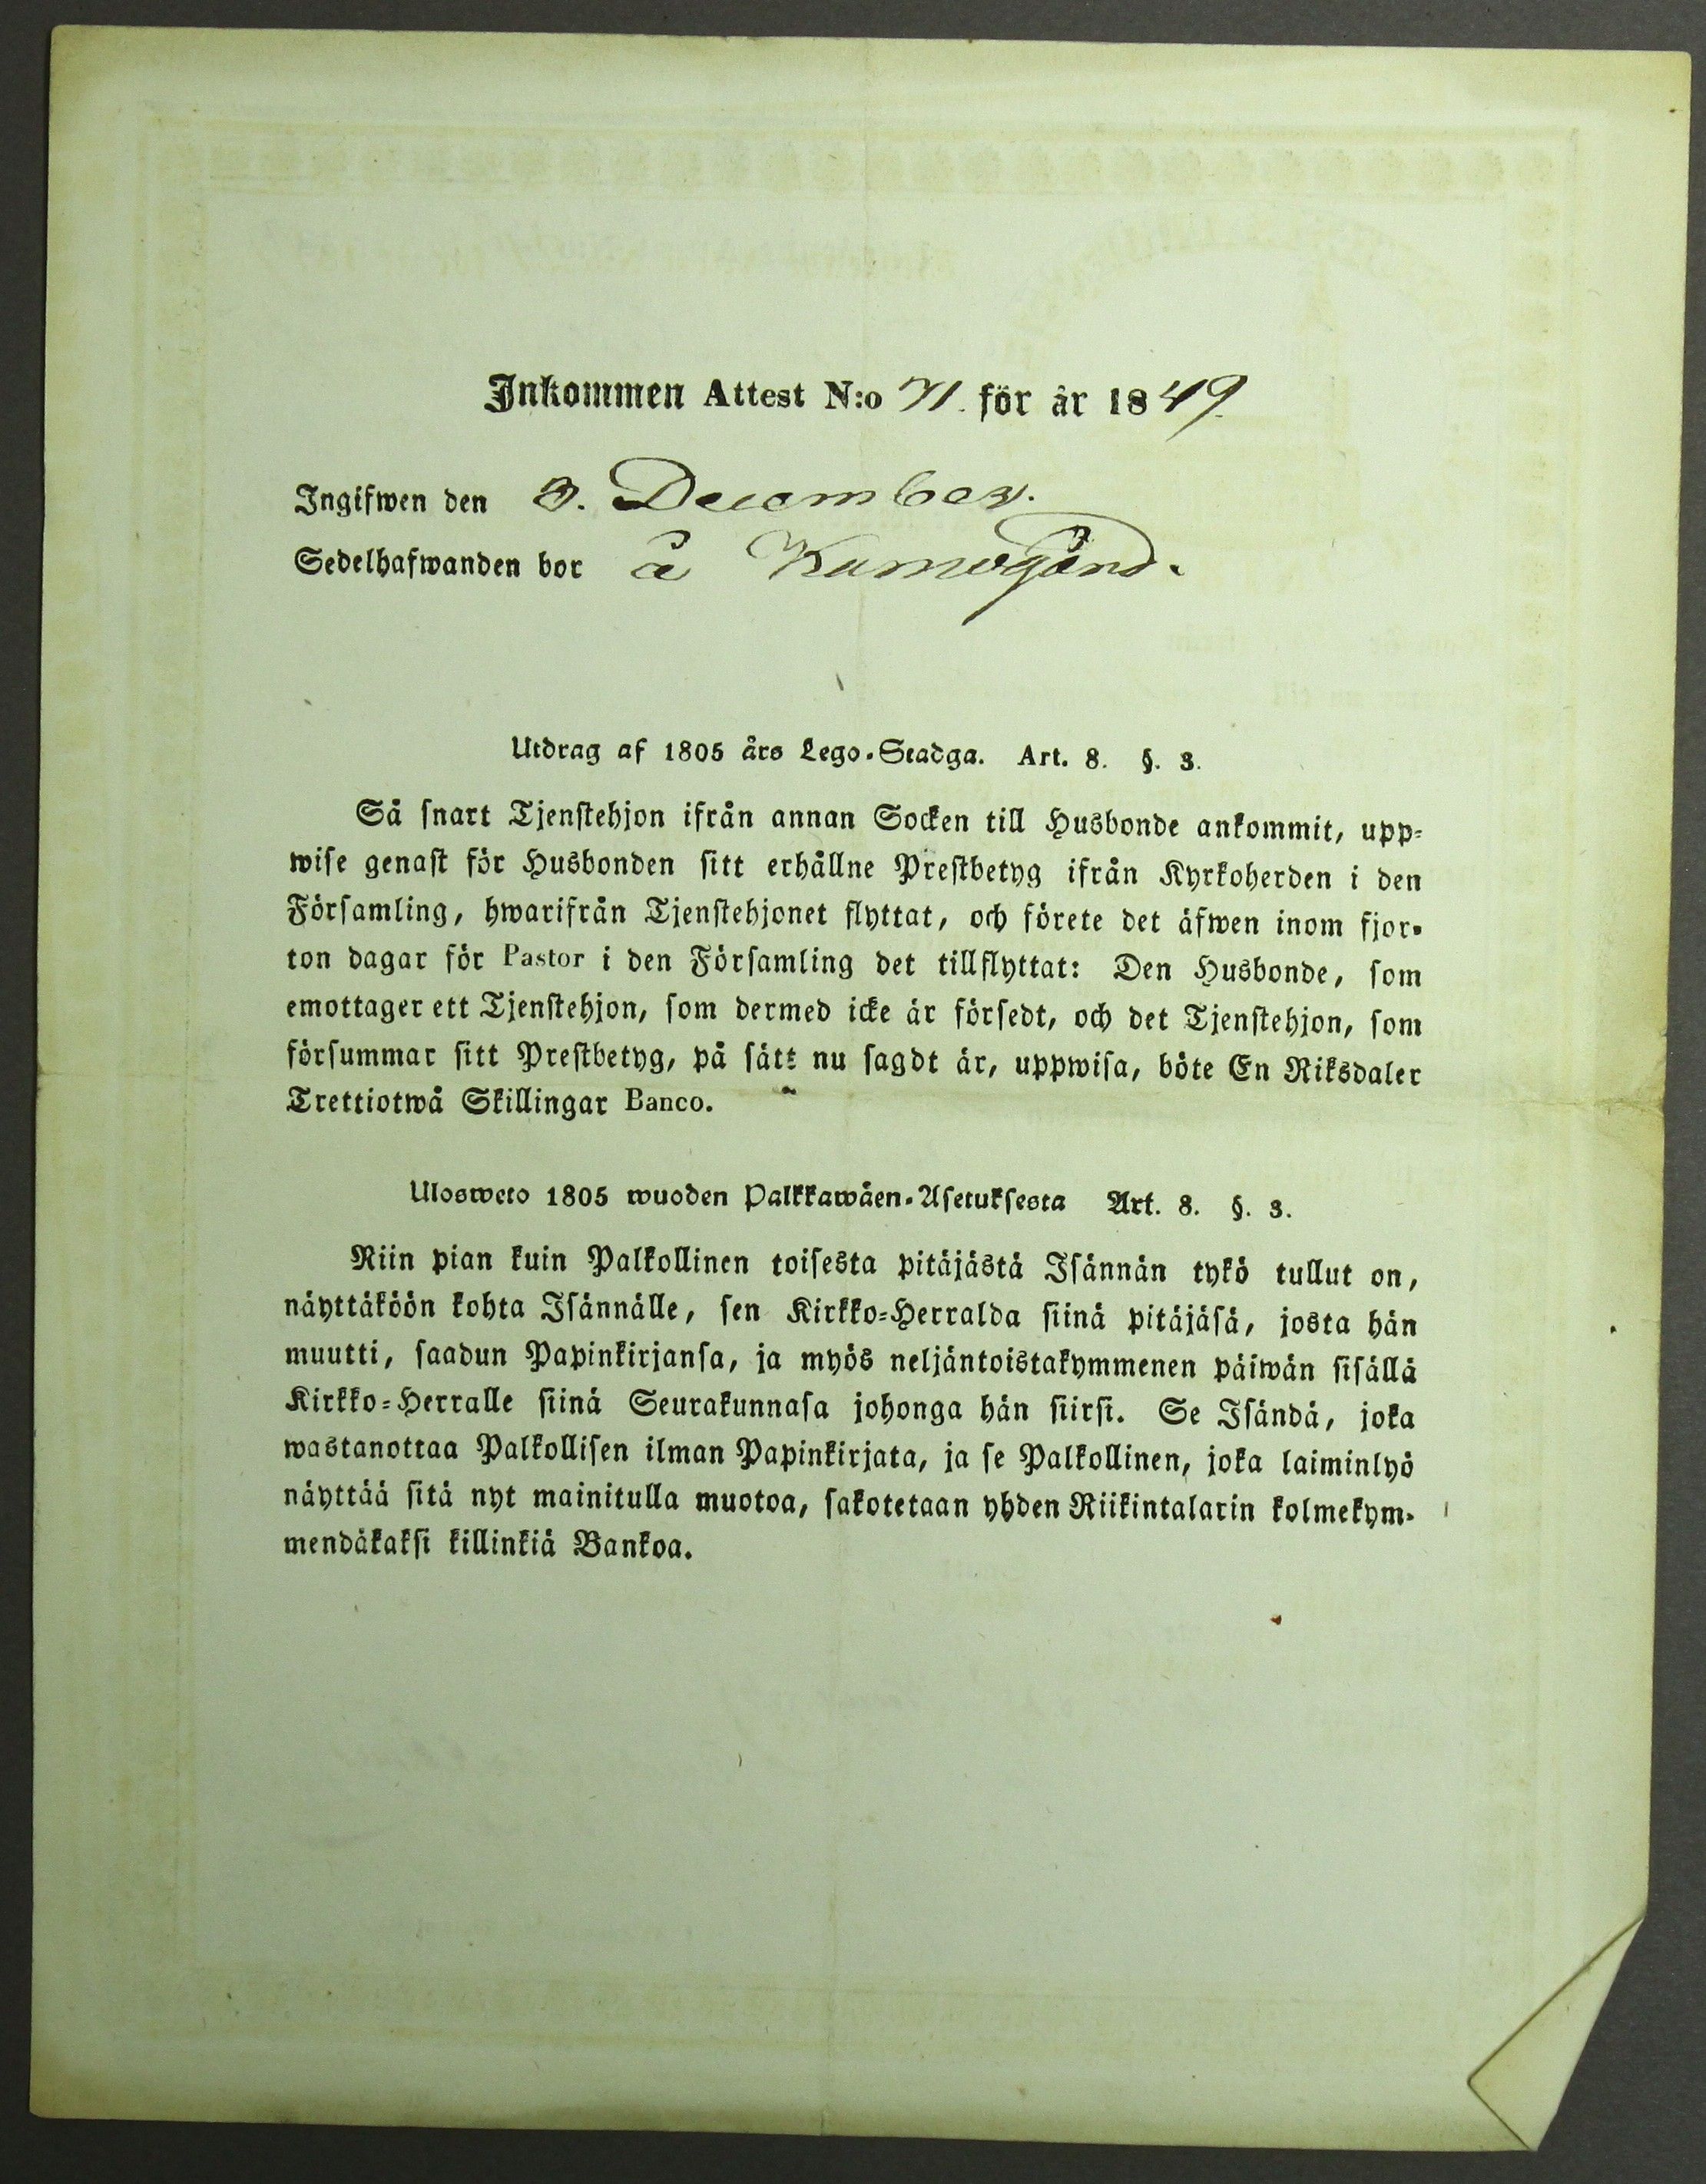 Inkommen Attest N:o 71. för år 1849.
Ingifwen den 3. December.
Sedelhafwanden bor å Kumogård.
Utdrag af 1805 års Lego-Stadga. Art. 8. §. 3.
Så snart Tjenstehjon ifrån annan Socken till Husbonde ankommit, upp-
wise genast för Husbonden sitt erhållne Prestbetyg ifrån Kyrkoherden i den
Församling, hwarifrån Tjenstehjonet flyttat, och förete det äfwen inom fjor-
ton dagar för Pastor i den Församling det tillflyttat: Den Husbonde, som
emottager ett Tjenstehjon, som dermed icke är försedt, och det Tjenstehjon, som
försummar sitt Prestbetyg, på sätt nu sagdt är, uppwisa, böte En Riksdaler
Trettiotwå Skillingar Banco.
Ulosweto 1805 wuoden Palkkawäen-Asetuksesta Art. 8. §. 3.
Niin pian kuin Palkollinen toisesta pitäjästä Isännän tykö tullut on,
näyttäköön kohta Isännälle, sen Kirkko-Herralda siinä pitäjäsä, josta hän
muutti, saadun Papinkirjansa, ja myös neljäntoistakymmenen päiwän sisällä
Kirkko-Herralle siinä Seurakunnasa johonga hän siirsi. Se Isändä, joka
wastanottaa Palkollisen ilman Papinkirjata, ja se Palkollinen, joka laiminlyö
näyttää sitä nyt mainitulla muotoa, sakotetaan yhden Riikintalarin kolmekym-
mendäkaksi killinkiä Bankoa.